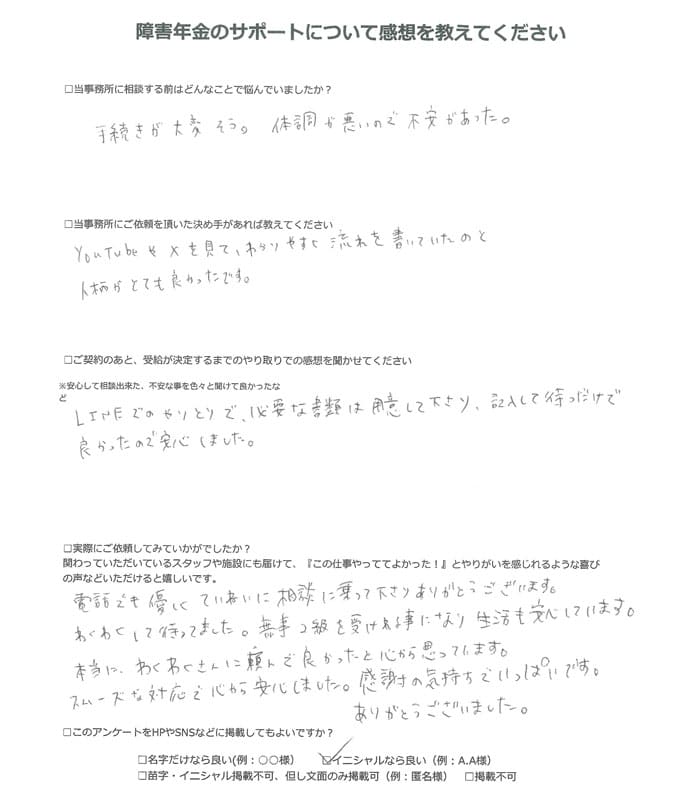 障害年金のサポートについて感想を教えてください
□当事務所に相談する前はどんなことで悩んでいましたか？
手続きが大変そう。 体調が悪いので不安があった。
□当事務所にご依頼を頂いた決め手があれば教えてください
YouTubeやXを見て、わかりやすく流れを書いていたのと
人柄がとても良かったです。
□ご契約のあと、受給が決定するまでのやり取りでの感想を聞かせてください
※安心して相談出来た、不安な事を色々と聞けて良かったな
ど
LINEでのやりとりで、必要な書類は用意して下さり、記入して待つだけで
良かったので安心しました。
□実際にご依頼してみていかがでしたか？
関わっていただいているスタッフや施設にも届けて、『この仕事やっててよかった！』とやりがいを感じれるような喜び
の声などいただけると嬉しいです。
電話でも優しくていねいに相談に乗って下さりありがとうございます。
わくわくして待ってました。無事2級を受けれる事になり生活も安心しています。
本当に、わくわくさんに頼んで良かったと心から思っています。
スムーズな対応で心から安心しました。感謝の気持ちでいっぱいです。
ありがとうございました。
□このアンケートをHPやSNSなどに掲載してもよいですか？
□名字だけなら良い(例：○○様） ☑イニシャルなら良い（例：A.A様）
□苗字・イニシャル掲載不可、但し文面のみ掲載可（例：匿名様） □掲載不可